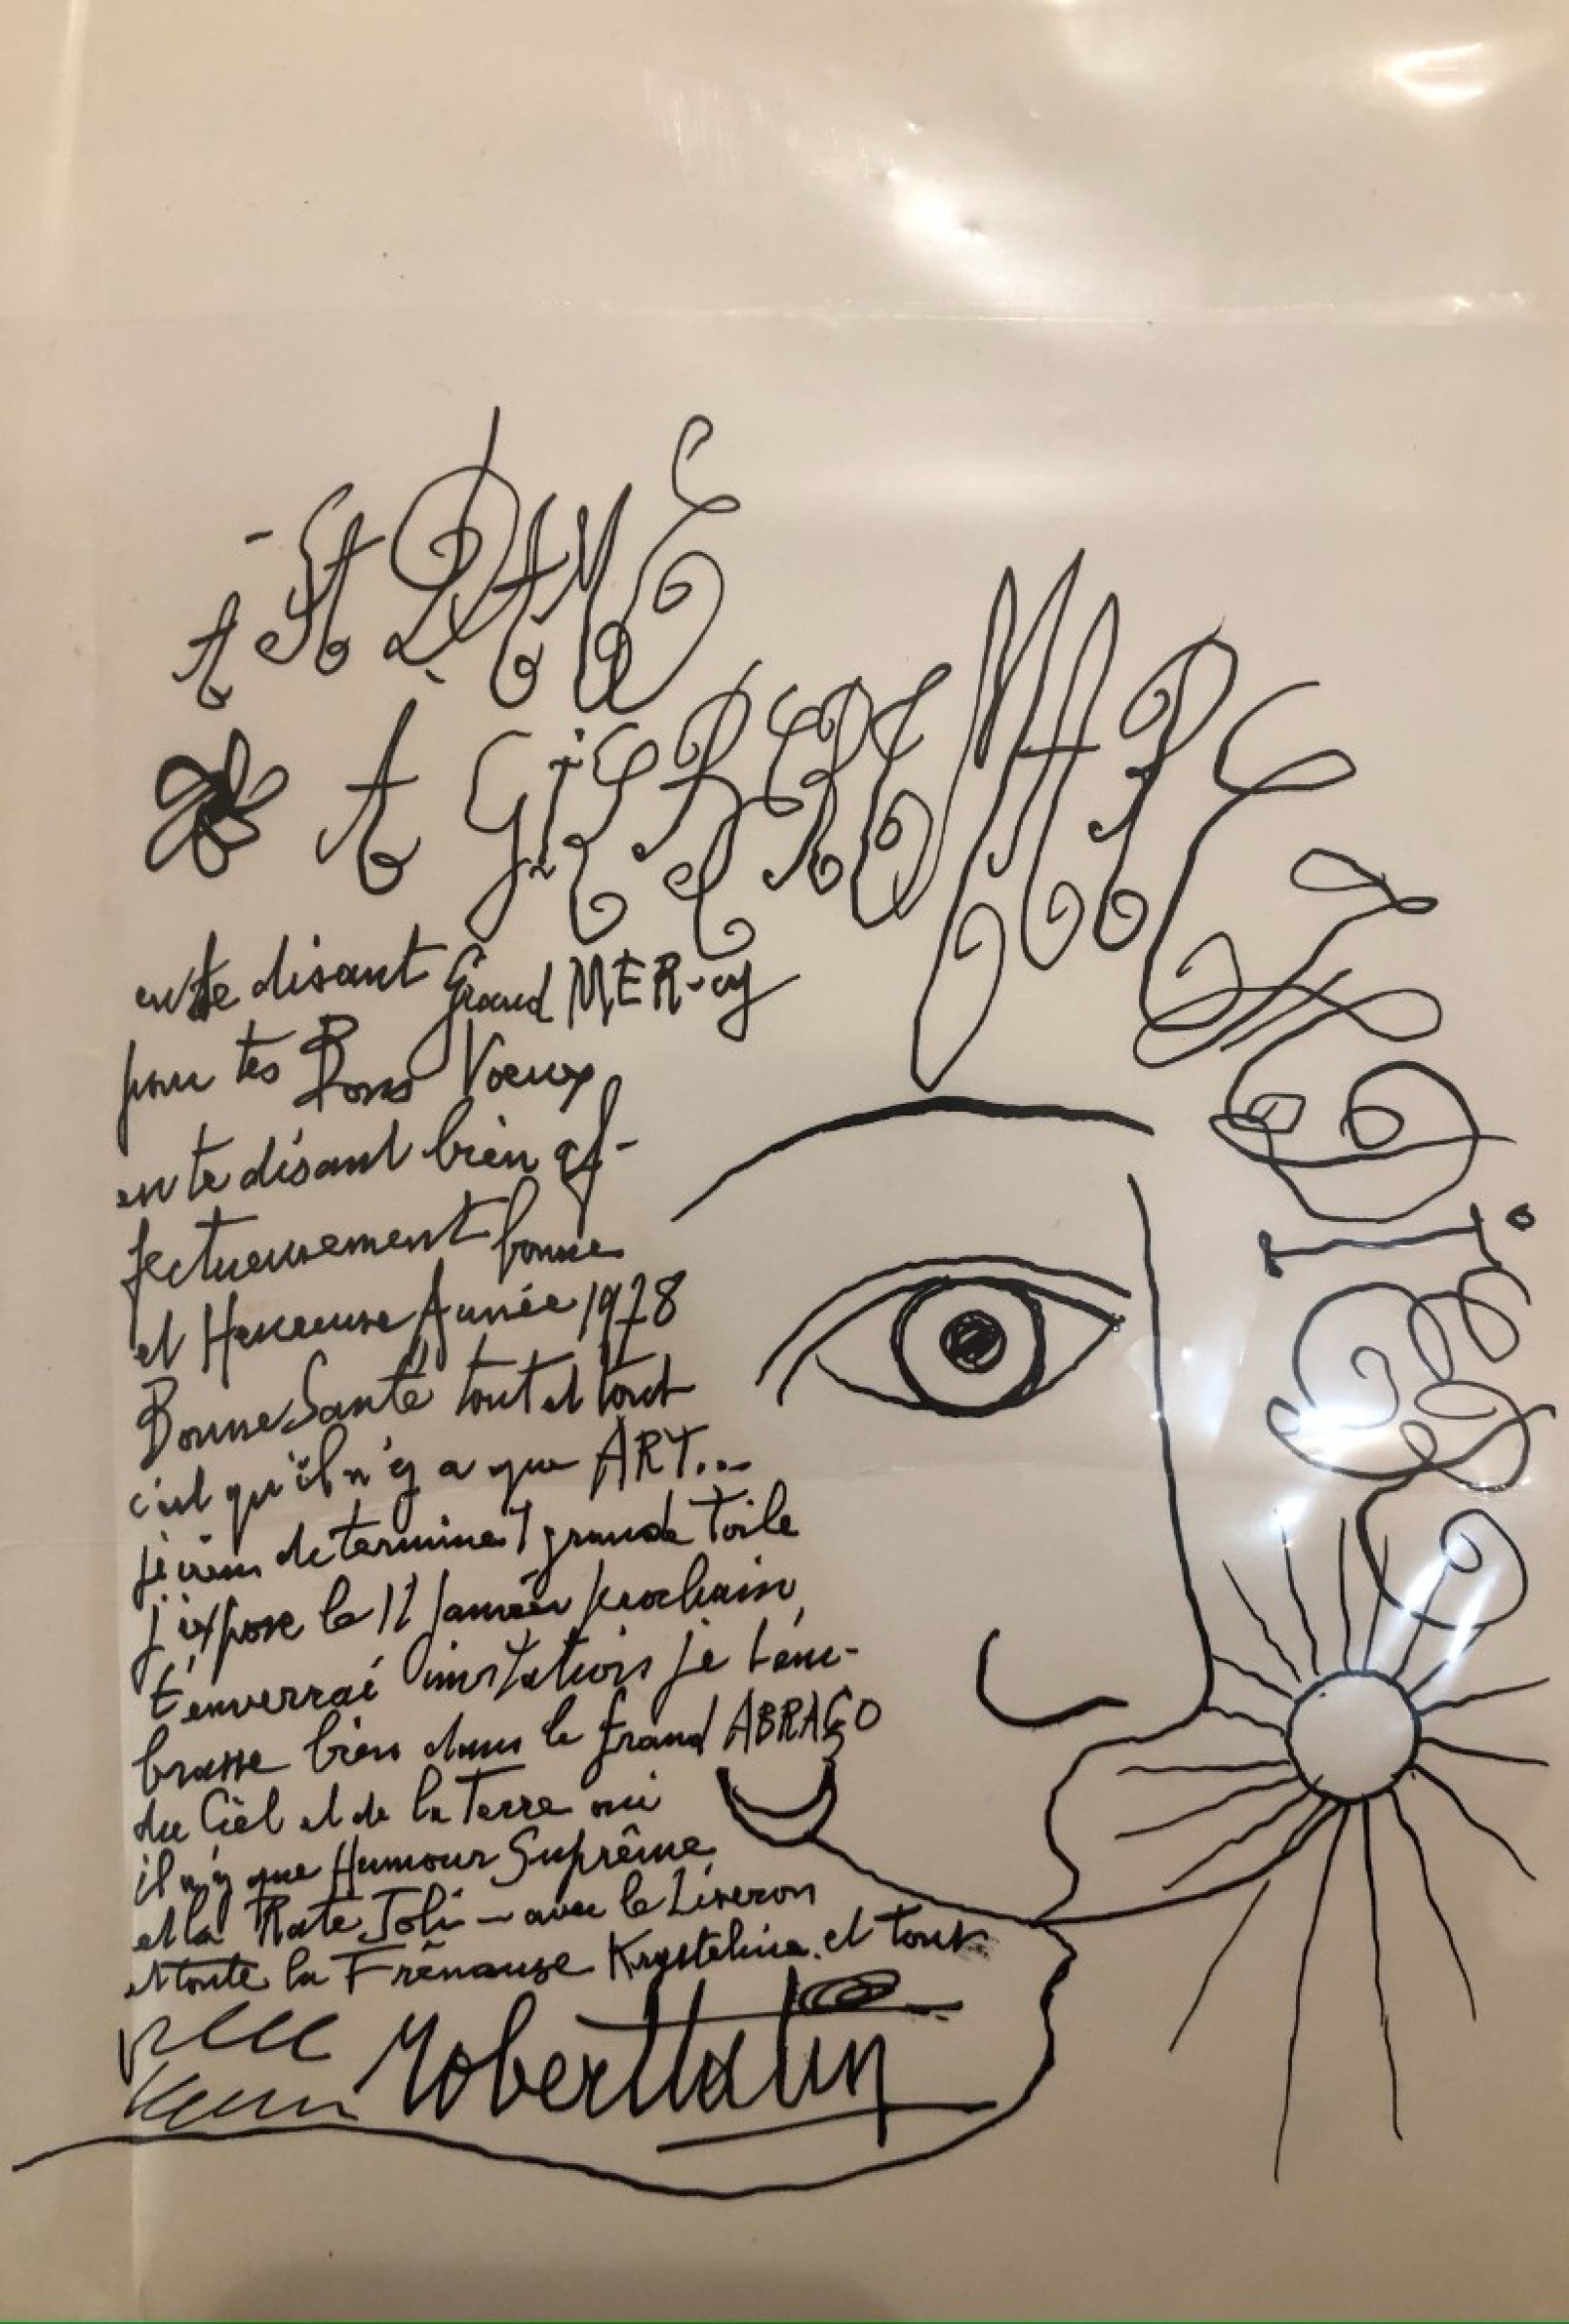 A STA DAME
A GiERRE MARC
en te disant Grand MER-cy
pour tes Bons Voeux
en te disant bien af-
fectueusement bonne
et Heureuse Année 1978
Bonne Santé tout et tout
c'est qu'il n'y a que ART...
je viens de terminer 1 grande Toile
j'expose le 12 Janvier prochain
t'enverrai invitations je t'em-
brasse bien dans le grand ABRAÇO
du Ciel et de la Terre où
il n'y que Humour Suprême
et la Rate Joli - avec le Liseron
et toute la Frênouse Krysteline et tout
Robert Tatin